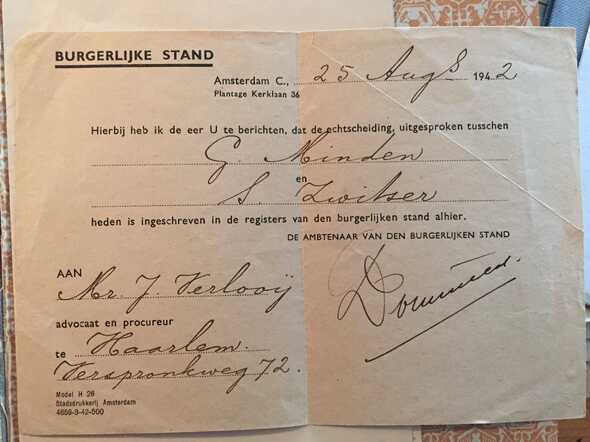 BURGERLIJKE STAND
Amsterdam C., 25 Augs 1942
Plantage Kerklaan 36
Hierbij heb ik de eer U te berichten, dat de echtscheiding, uitgesproken tusschen
G. Minden
en
S. Zwitser
heden is ingeschreven in de registers van den burgerlijken stand alhier.
DE AMBTENAAR VAN DEN BURGERLIJKEN STAND
AAN
Mr. J. Verlooÿ
advocaat en procureur
te Haarlem.
Verspronkweg 72.
Model H 26
Stadsdrukkerij Amsterdam
4659-3-42-500